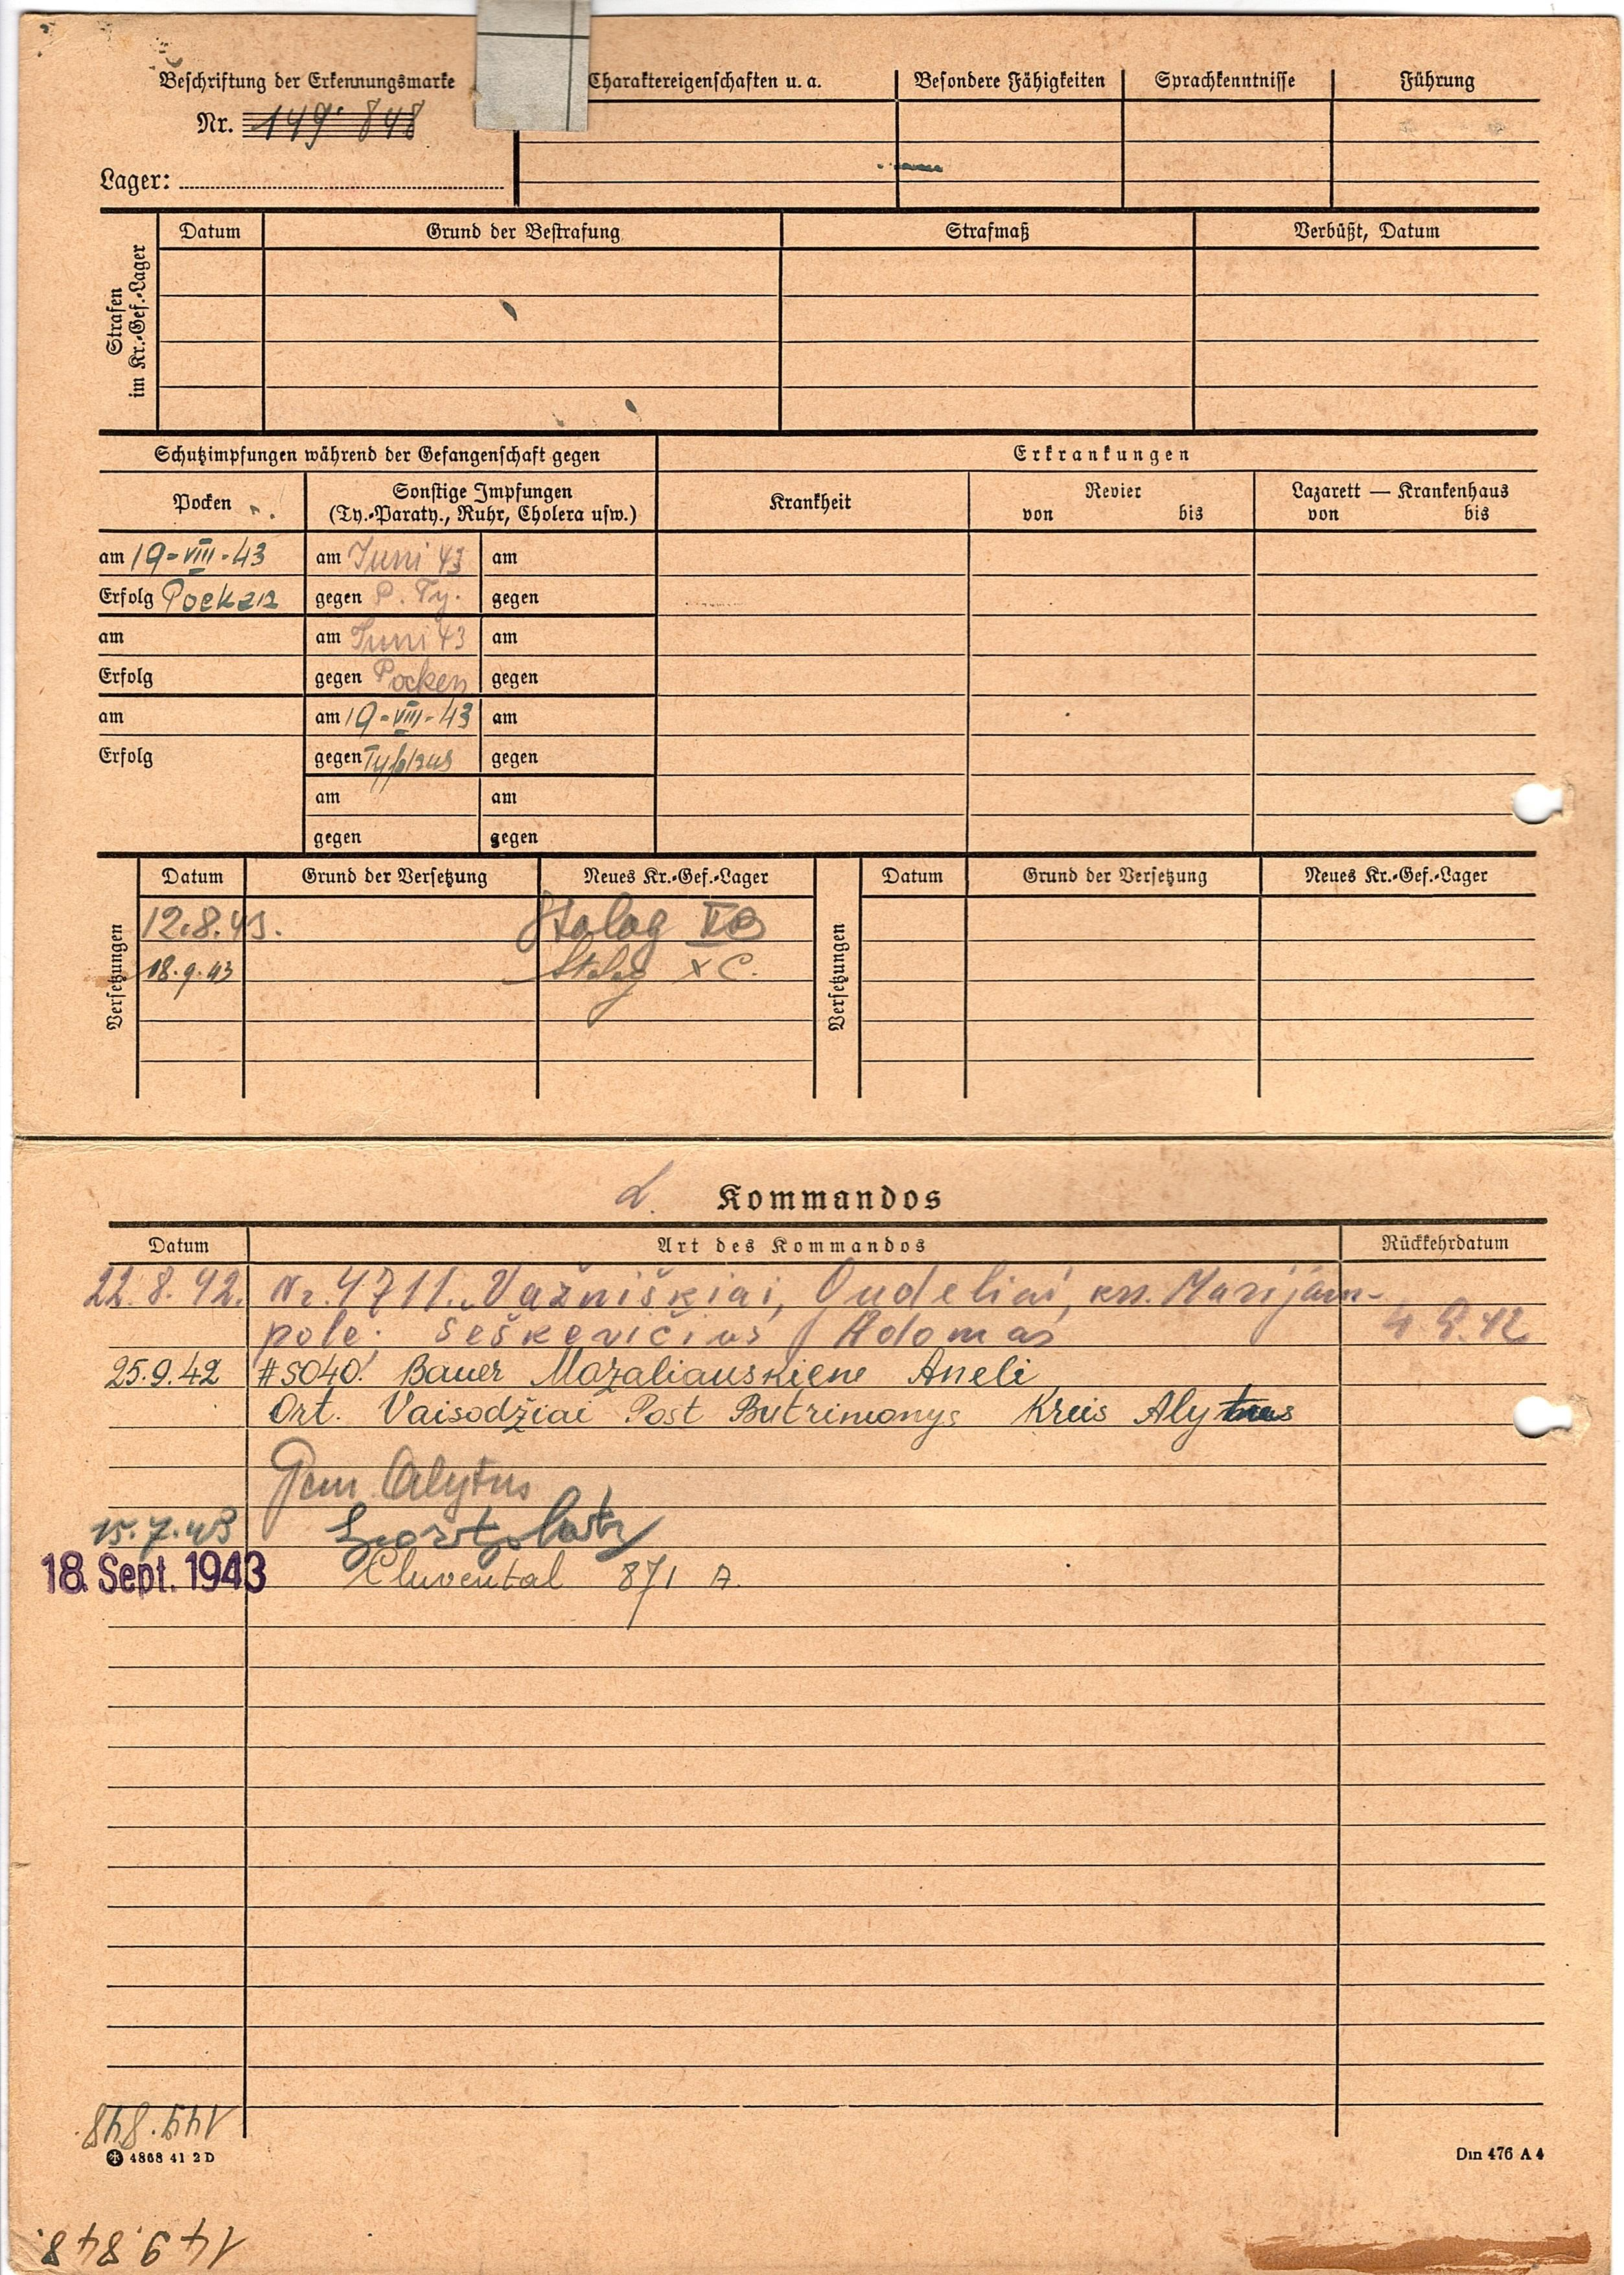 Beschriftung der Erkennungsmarke
Nr. 149·848
Lager:
Charaktereigenschaften u. a. Besondere Fähigkeiten Sprachkenntnisse Führung
Strafen im Kr.-Gef.-Lager
Datum Grund der Bestrafung Strafmaß Verbüßt, Datum
Schutzimpfungen während der Gefangenschaft gegen Erkrankungen
Pocken Sonstige Impfungen (Ty.-Paraty., Ruhr, Cholera usw.) Krankheit Revier von bis Lazarett — Krankenhaus von bis
am 19-VIII-43 am Juni 43 am
Erfolg Pocken gegen P. Ty. gegen
am am Juni 43 am
Erfolg gegen Pocken gegen
am am 19-VIII-43 am
Erfolg gegen Typhus gegen
am am
gegen gegen
Versetzungen
Datum Grund der Versetzung Neues Kr.-Gef.-Lager
12.8.43. Stalag
18.9.43 Stalag X C.
Versetzungen
Datum Grund der Versetzung Neues Kr.-Gef.-Lager
Kommandos
Datum Art des Kommandos Rückkehrdatum
22.8.42. Nr. 4711. Važniškiai, Gudeliai, krs. Marijam-
pole; Seškevičius Adomas 4.9.42
25.9.42 #5040. Bauer Mazaliauskiene Aneli
Ort. Vaisodžiai Post Butrimonys Kreis Alytus
Gem Alytus
15.7.43
18. Sept. 1943 Cluvental 871 A.
149.848
4868 41 2 D
Din 476 A 4
149.848.